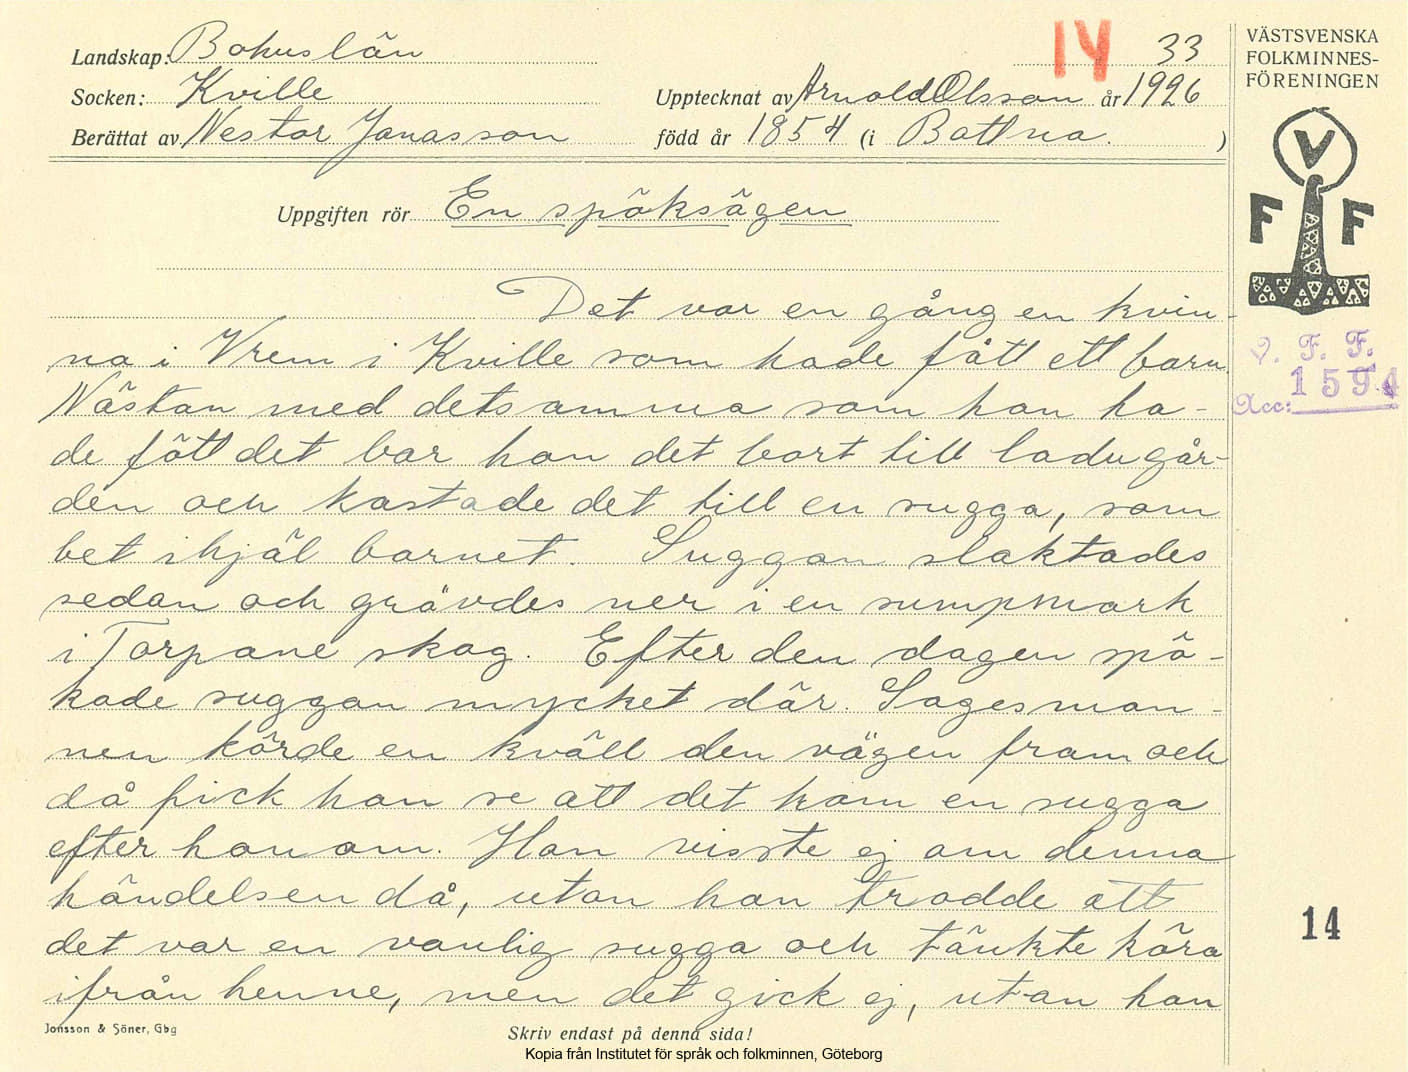 Landskap: Bohuslän
IV 33
Socken: Kville
Upptecknat av Arnold Olsson år 1926
Berättat av Nestor Jonasson
född år 1854 (i Bottna. )
Uppgiften rör En spöksägen
Det var en gång en kvin-
na i Vrem i Kville som hade fått ett barn
Nästan med detsamma som hon ha-
de fött det bar hon det bort till ladugår-
den och kastade det till en sugga, som
bet ihjäl barnet. Suggan slaktades
sedan och grävdes ner i en sumpmark
i Torpane skog. Efter den dagen spö-
kade suggan mycket där. Sagesman-
nen körde en kväll den vägen fram och
då fick han se att det kom en sugga
efter honom. Han visste ej om denna
händelsen då, utan han trodde att
det var en vanlig sugga och tänkte köra
ifrån henne, men det gick ej, utan hon
Jonsson & Söner, Gbg
Skriv endast på denna sida!
Kopia från Institutet för språk och folkminnen, Göteborg
VÄSTSVENSKA
FOLKMINNES-
FÖRENINGEN
V
F F
V. F. F.
1594
Acc:
14